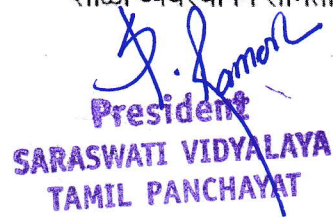 P. Raman
President
SARASWATI VIDYALAYA
TAMIL PANCHAYAT